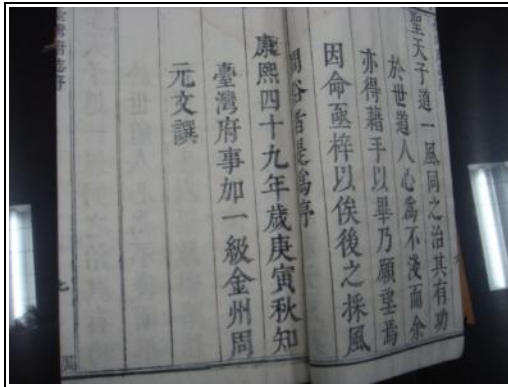 聖天子道一風同之治其有功
於世道人心為不淺而余
亦得藉手以畢乃願望焉
因命亟梓以俟後之採風
問俗者是為序
康熙四十九年歲庚寅秋知
臺灣府事加一級金州周
元文譔
臺灣府志序
七